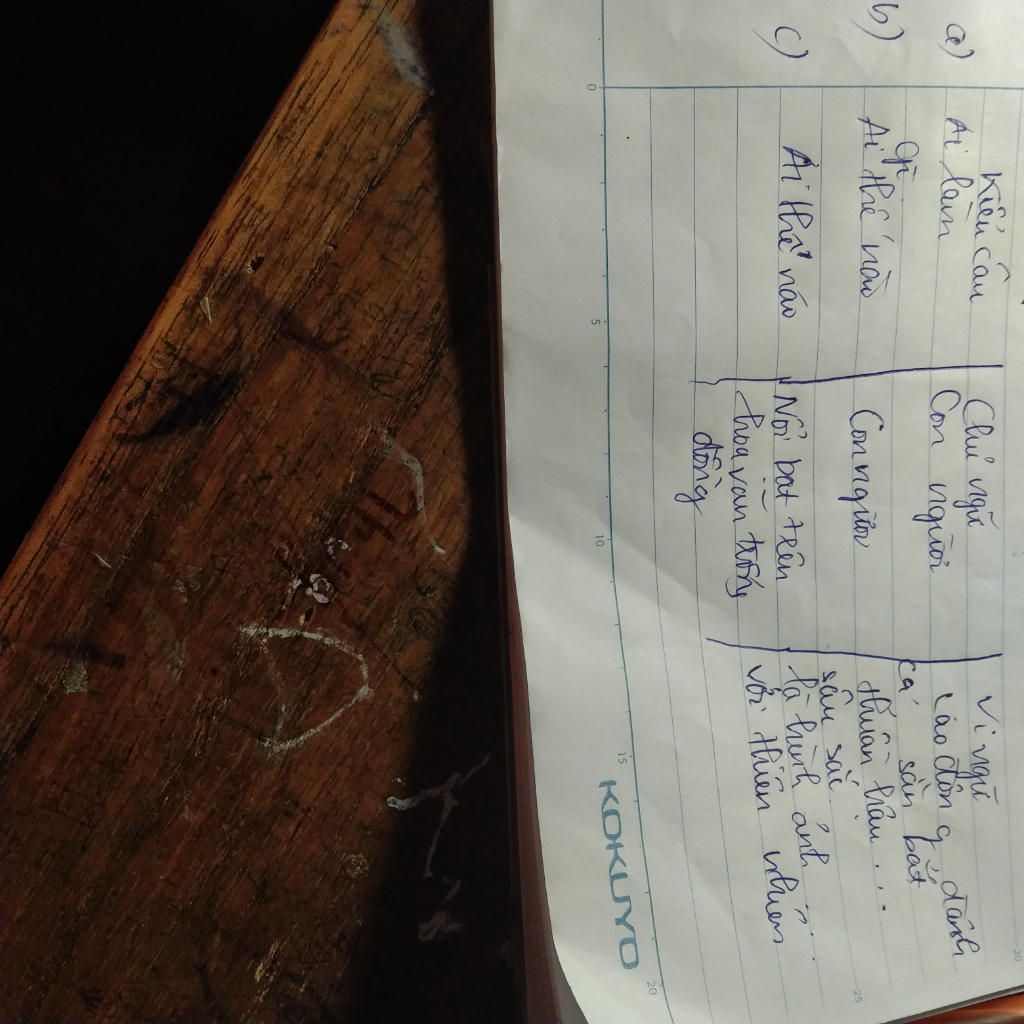 Kiểu câu Chủ ngữ Vị ngữ
a) Ai làm Con người lao động, đánh
gì cá, săn bắt
b) Ai thế nào Con người thuần hậu...
sâu sắc
c) Ai thế nào Nổi bật trên là hình ảnh...
hoa văn trống với thiên nhiên
đồng
0 5 10 15 20
KOKUYO
25
20